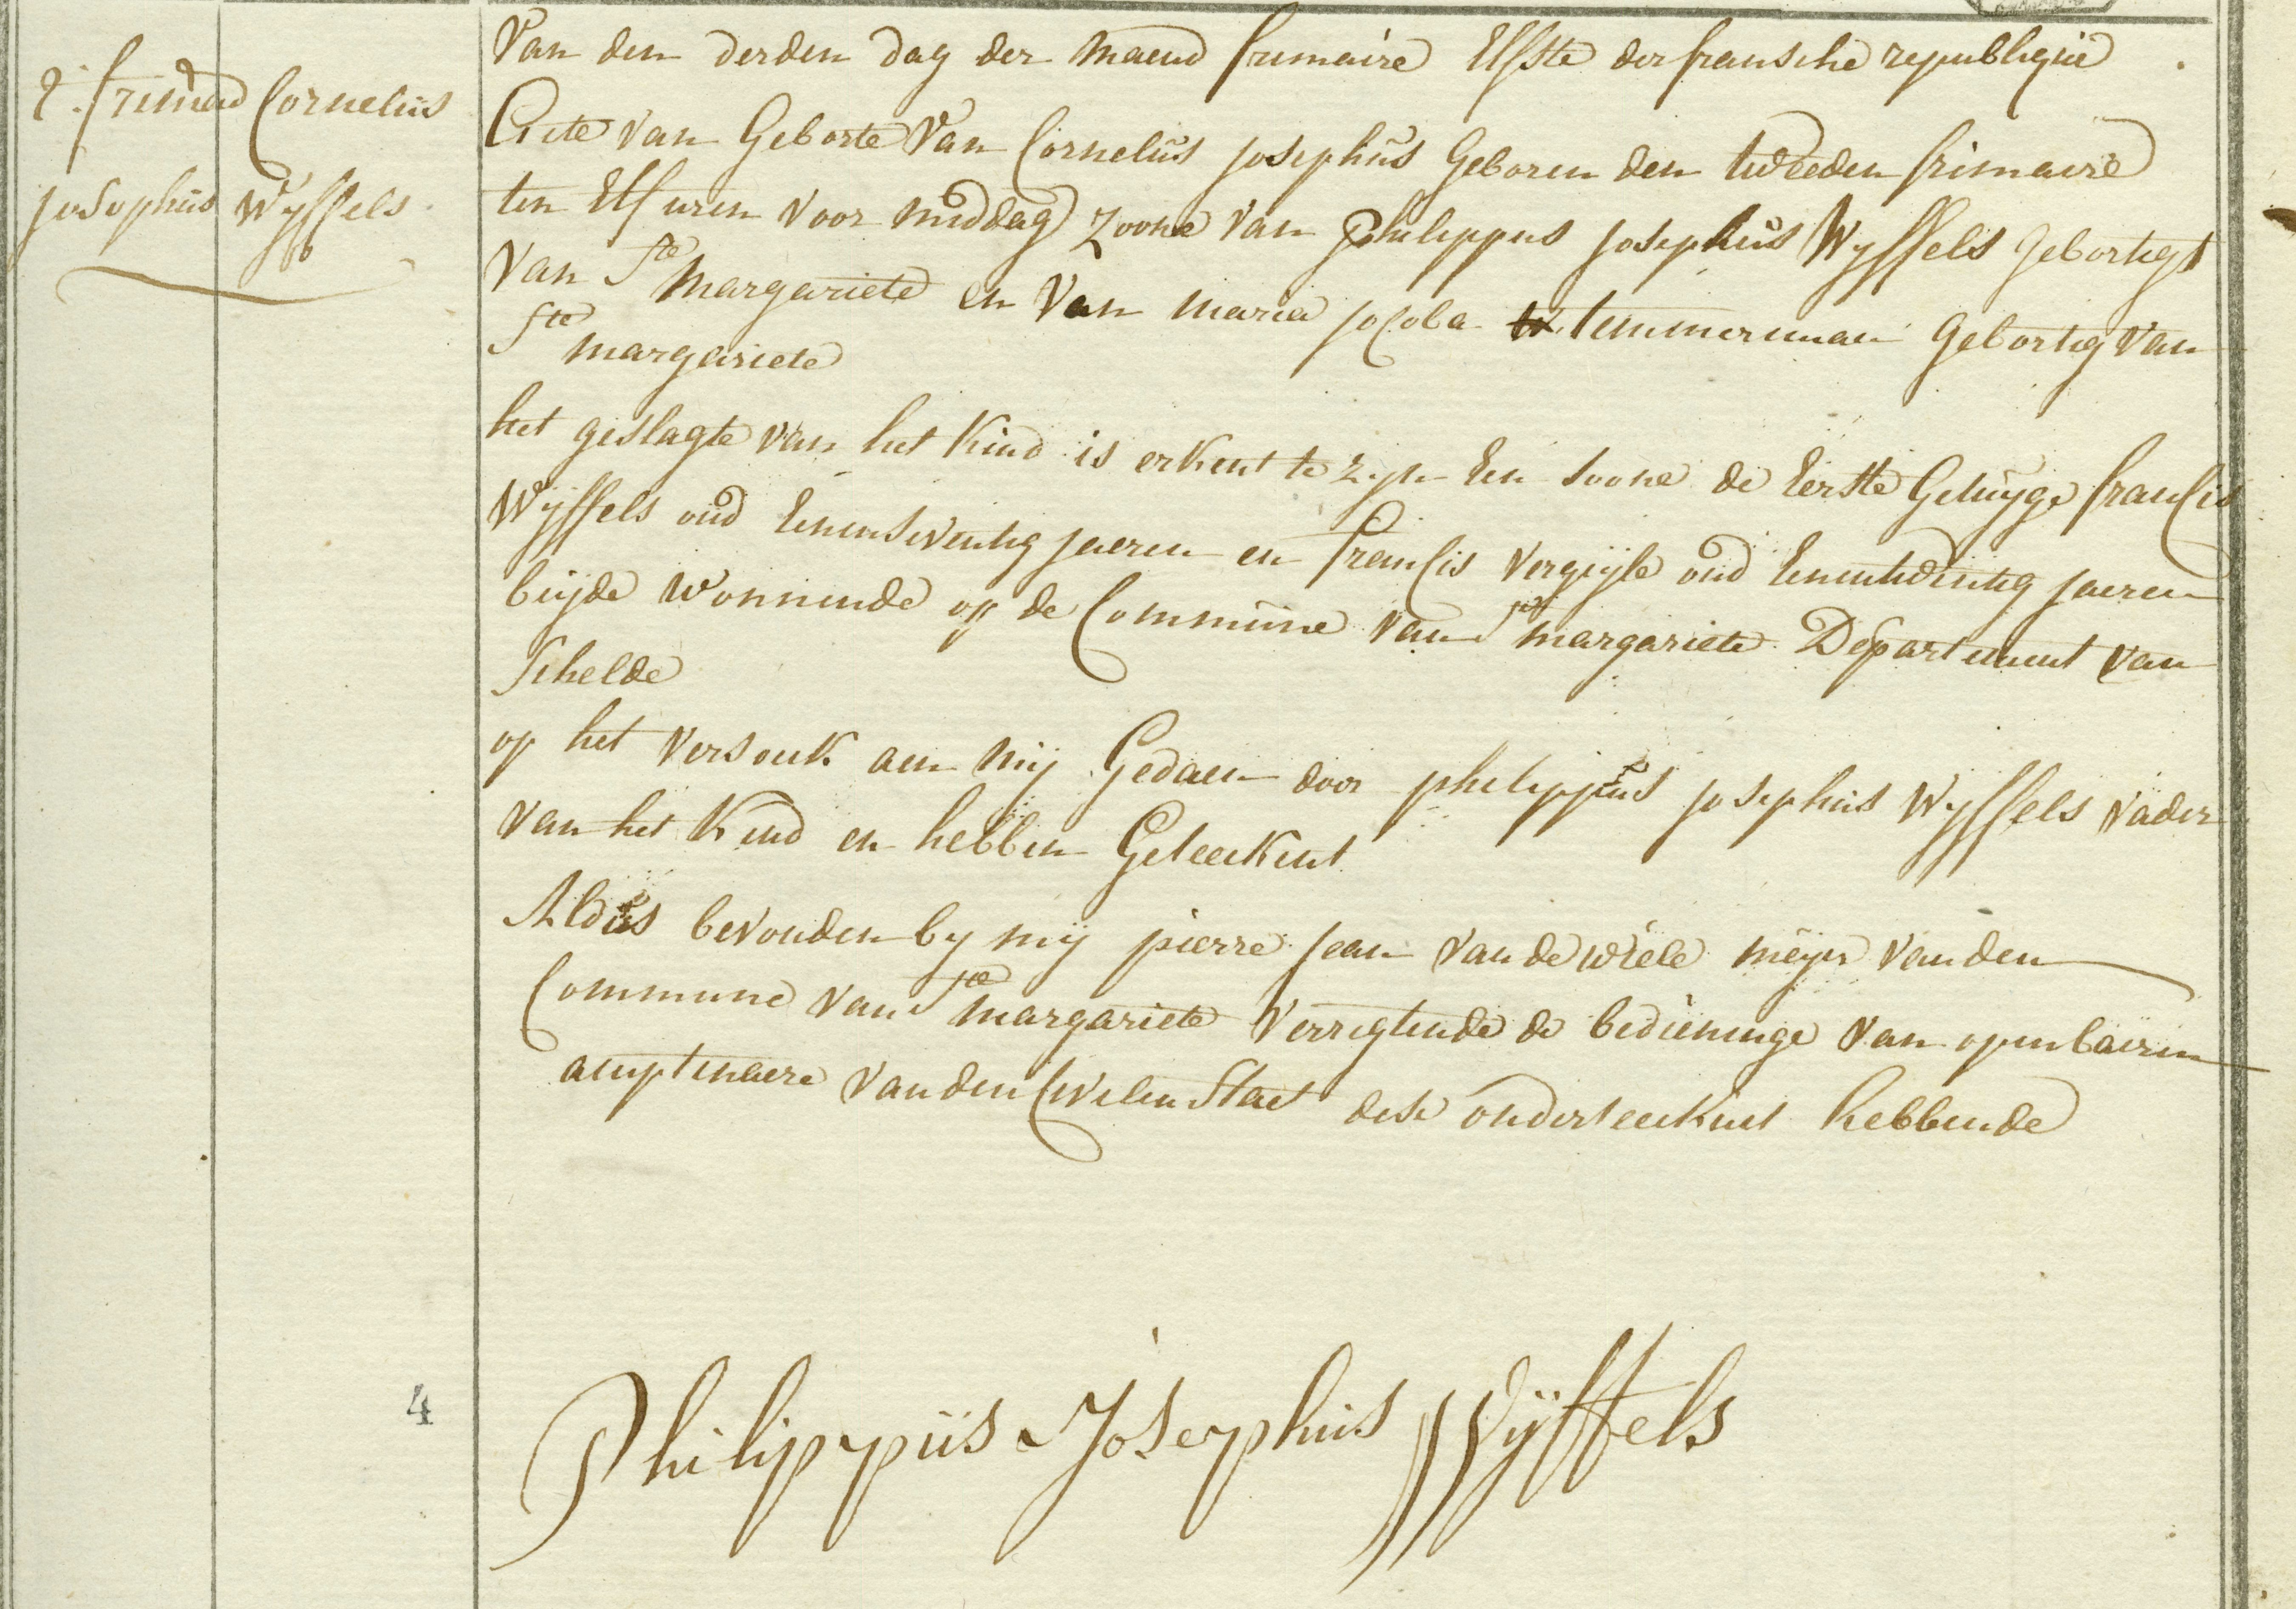 2: frimad Cornelius
Josephus Wÿffels
Van den derden dag der maend frimaire Elfste der fransche republiqüe
Acte van Geborte Van Cornelüs josephüs Geboren den tweeden frimaire
ten Elf uren voor middag Zoone van philippus josephüs Wÿffels Gebortigt
van Ste margariete en van maria jocoba temmerman Gebortig van
Ste margariete
het geslagte van het Kind is erkent te zyn Een soone de Eerste Getuÿge francis
Wÿffels oud Eenenseventig jaeren en francis vergÿle oud Eenentwintig jaeren
beÿde wonnende op de Commüne van Ste margariete Departement van
Schelde
op het versouk aen mÿ Gedaen door philippüs josephus Wÿffels vader
van het Kind en hebben Geteeckent
Aldüs bevonden by mÿ pierre jean van de wiele meÿer van den
Commune van Ste margariete verrigtende de bedieninge van openbaeren
amptenaere van den Civilen Staet dese onderteeckent hebbende
4
Philippüs Josephus Wÿffels